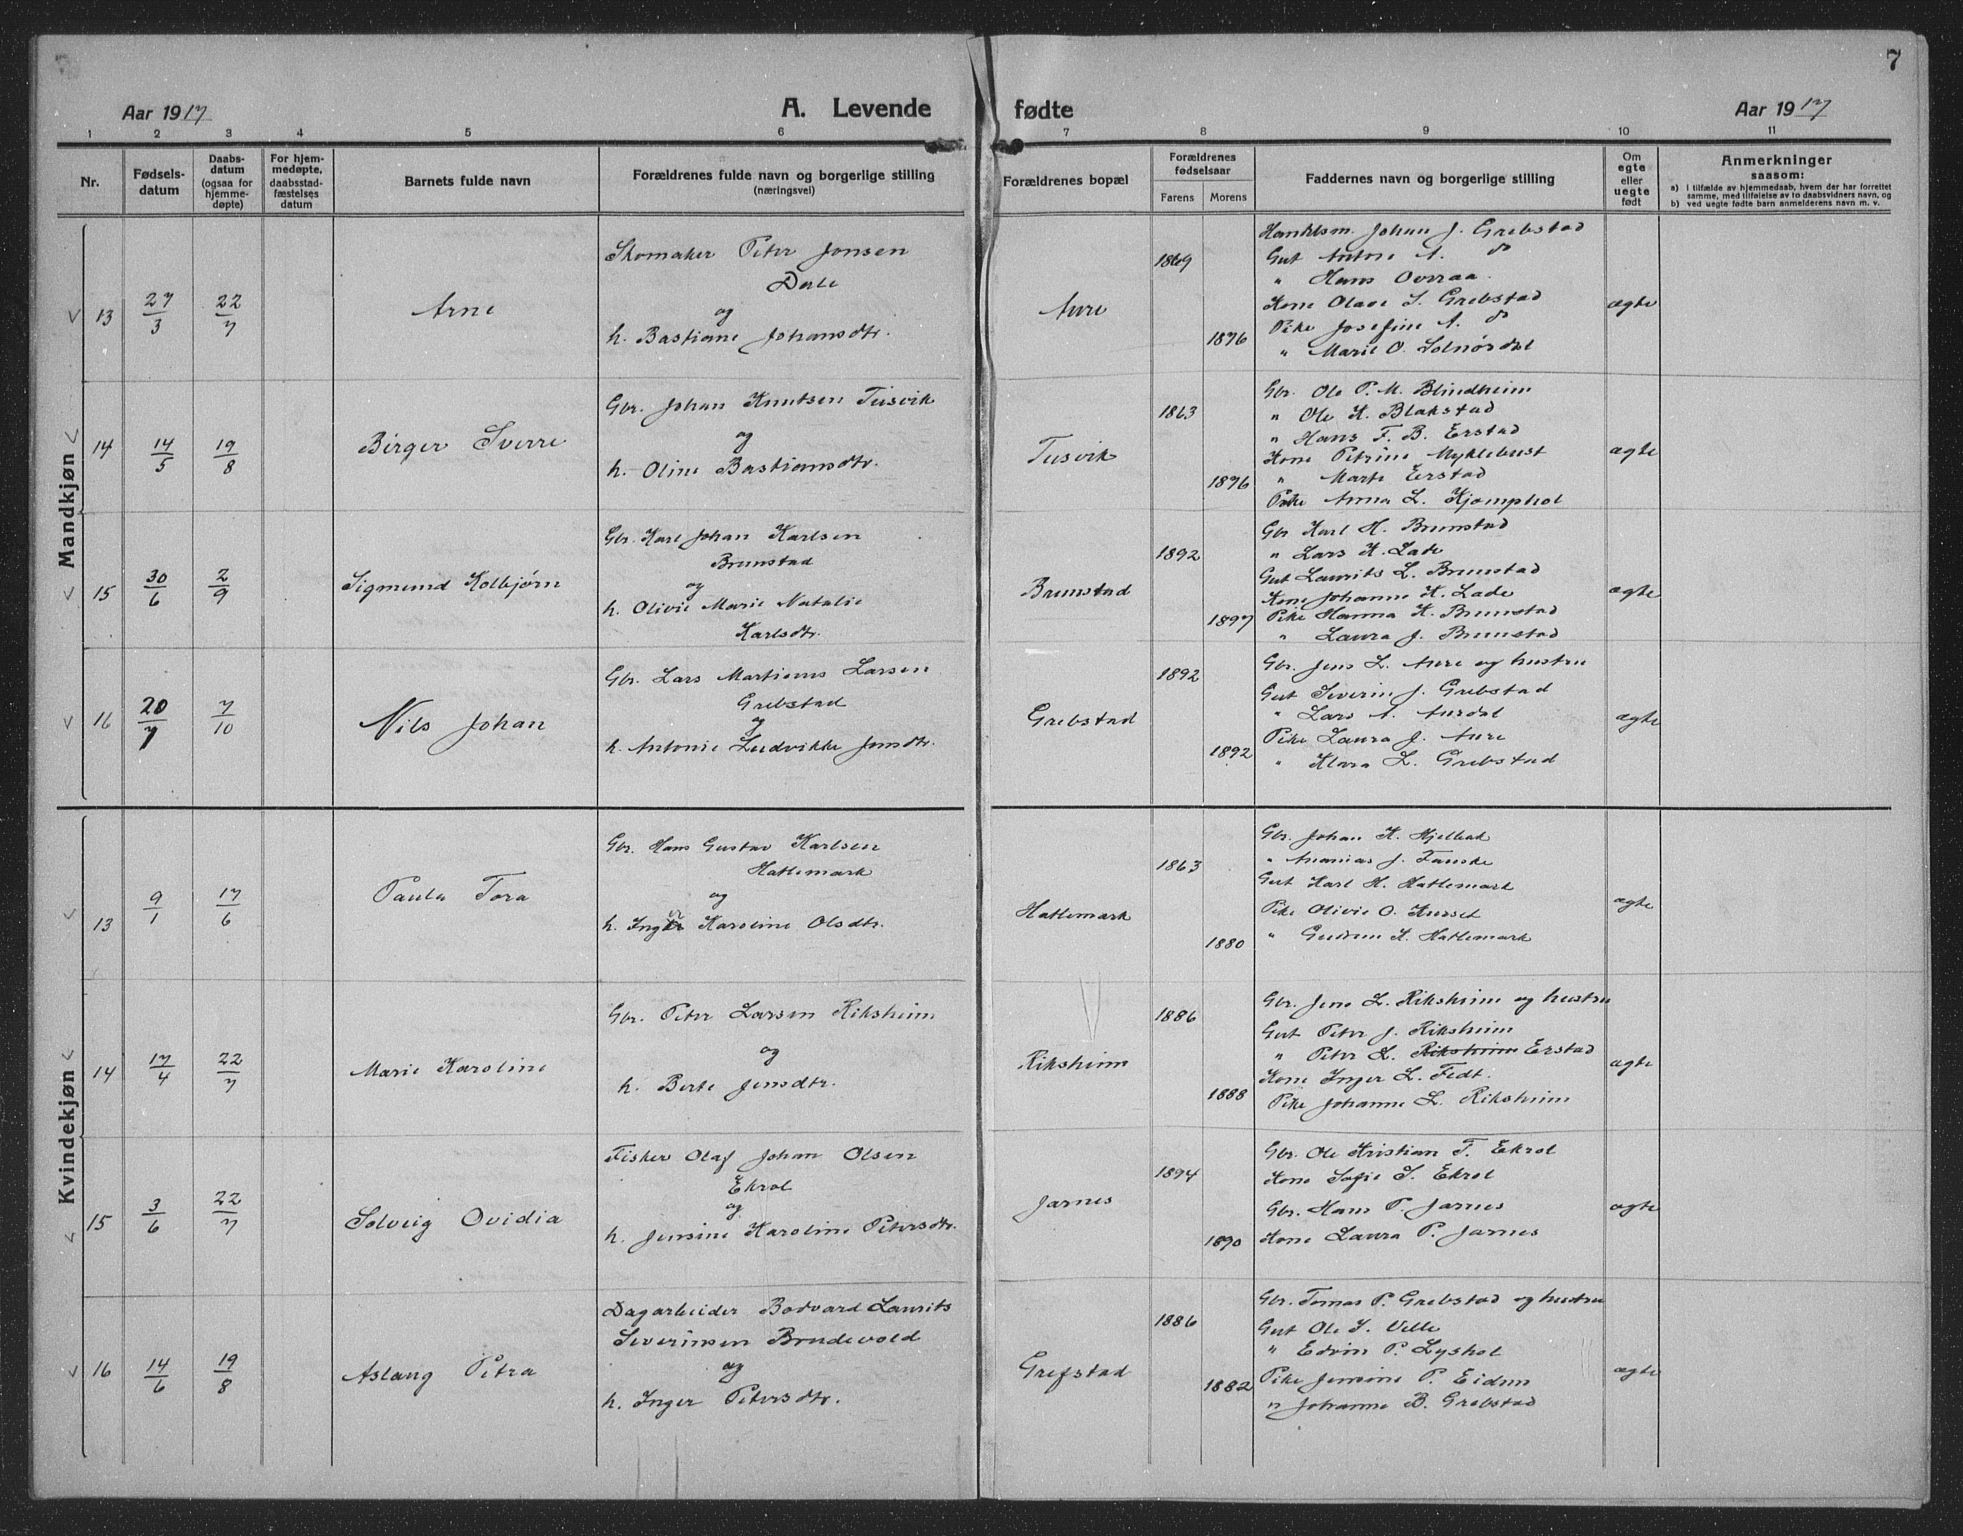 7
Aar 1917
A. Levende fødte
Aar 1917
1 2 3 4 5 6 7 8 9 10 11
Nr.
Fødsels-
datum
Daabs-
datum
(ogsaa for
hjemme-
døpte)
For hjem-
medøpte,
daabsstad-
fæstelses
datum
Barnets fulde navn
Forældrenes fulde navn og borgerlige stilling
(næringsvei)
Forældrenes bopæl
Forældrenes
fødselsaar
Farens Morens
Faddernes navn og borgerlige stilling
Om
egte
eller
uegte
født
Anmerkninger
saasom:
a) I tilfælde av hjemmedaab, hvem der har forrettet
samme, med tilføielse av to daabsvidners navn, og
b) ved uegte fødte barn anmelderens navn m. v.
Mandkjøn
13 27/3 22/7 Arne
Skomaker Peter Jonsen
Dale
og
h. Bastiane Johansdtr.
Aure
1869
1876
Handelsm. Johan J. Grebstad
Gut Anton A. do
" Hans Overaa
Kone Olave S. Grebstad
Pike Josefine A. do
" Marie O. Solnørdal
ægte
14 14/5 19/8 Birger Sverre
Gbr. Johan Knutsen Tusvik
og
h. Oline Bastiansdtr.
Tusvik
1863
1876
Gbr. Ole P. M. Blindheim
" Ole K. Blakstad
" Hans F. B. Erstad
Kone Petrine Myklebust
" Marte Erstad
Pike Anna L. Kjemphol
ægte
15 30/6 2/9 Sigmund Kolbjørn
Gbr. Karl Johan Karlsen
Brunstad
og
h. Olivie Marie Natalie
Karlsdtr.
Brunstad
1892
1897
Gbr Karl H. Brunstad
" Lars K. Lade
Gut Laurits L. Brunstad
Kone Johanne K. Lade
Pike Hanna K. Brunstad
" Laura J. Brunstad
ægte
16 20/7 7/10 Nils Johan
Gbr. Lars Martinus Larsen
Grebstad
og
h. Antonie Ludvikke Jensdtr.
Grebstad
1892
1892
Gbr. Jens L. Aure og hustru
Gut Severin J. Grebstad
" Lars A. Aurdal
Pike Laura J. Aure
" Klara L. Grebstad
ægte
Kvindekjøn
13 9/1 17/6 Paula Tora
Gbr. Hans Gustav Karlsen
Hatlemark
og
h. Inger Karoline Olsdtr.
Hatlemark
1863
1880
Gbr. Johan K. Hjelbak
" Ananias J. Fauske
Gut Karl H. Hatlemark
Pike Olivie O. Kurset
" Gudrun K. Hatlemark
ægte
14 17/4 22/7 Marie Karoline
Gbr. Peter Larsen Riksheim
og
h. Berte Jensdtr.
Riksheim
1886
1888
Gbr. Jens L. Riksheim og hustru
Gut Peter J. Riksheim
" Peter L. Riksheim Erstad
Kone Inger L. Fedt.
Pike Johanne L. Riksheim
ægte
15 3/6 22/7 Solveig Ovidia
Fisker Olaf Johan Olsen
Ekrol
og
h. Jensine Karoline Petersdtr.
Jarnes
1894
1890
Gbr. Ole Kristian T. Ekrol
Kone Sofie S. Ekrol
Gbr. Hans P. Jarnes
Kone Laura P. Jarnes
ægte
16 14/6 19/8 Aslaug Petra
Dagarbeider Bodvard Laurits
Severinsen Brudevold
og
h. Inger Petersdtr.
Grefstad
1886
1882
Gbr. Tomas P. Grebstad og hustru
Gut Ole S. Velle
" Edvin P. Lyshol
Pike Jensine P. Eidem
" Johanne B. Grebstad
ægte